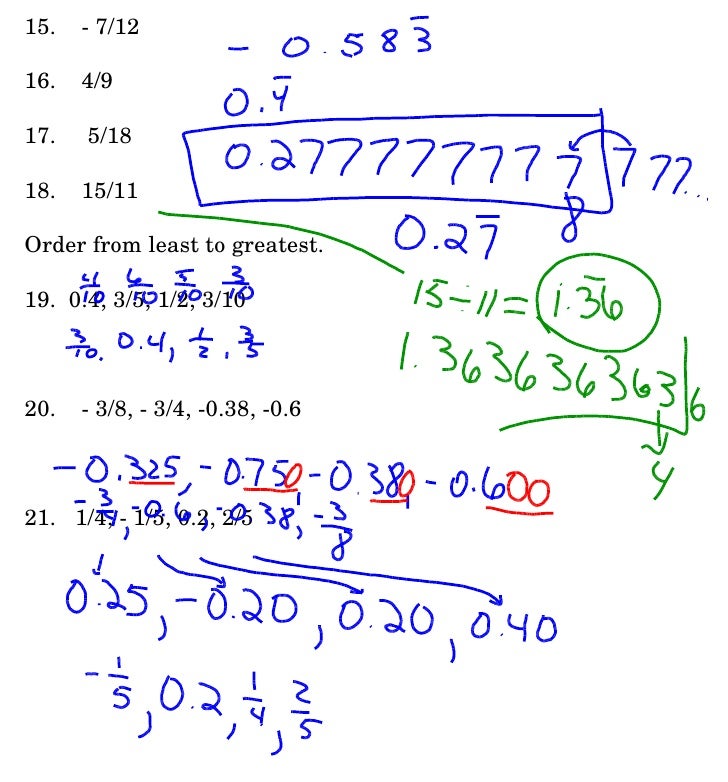 15. - 7/12
- 0.583̅
16. 4/9
0.4̅
17. 5/18
0.2777777777 777...
8
18. 15/11
0.27̅
Order from least to greatest.
15÷11= 1.3̅6̅
4/10 6/10 5/10 3/10
19. 0.4, 3/5, 1/2, 3/10
3/10, 0.4, 1/2, 3/5
1.363636363|6
4
20. - 3/8, - 3/4, -0.38, -0.6
-0.325, -0.750 -0.380 -0.600
-3/4, -0.6, -0.38, -3/8
21. 1/4, - 1/5, 0.2, 2/5
0.25, -0.20, 0.20, 0.40
-1/5, 0.2, 1/4, 2/5